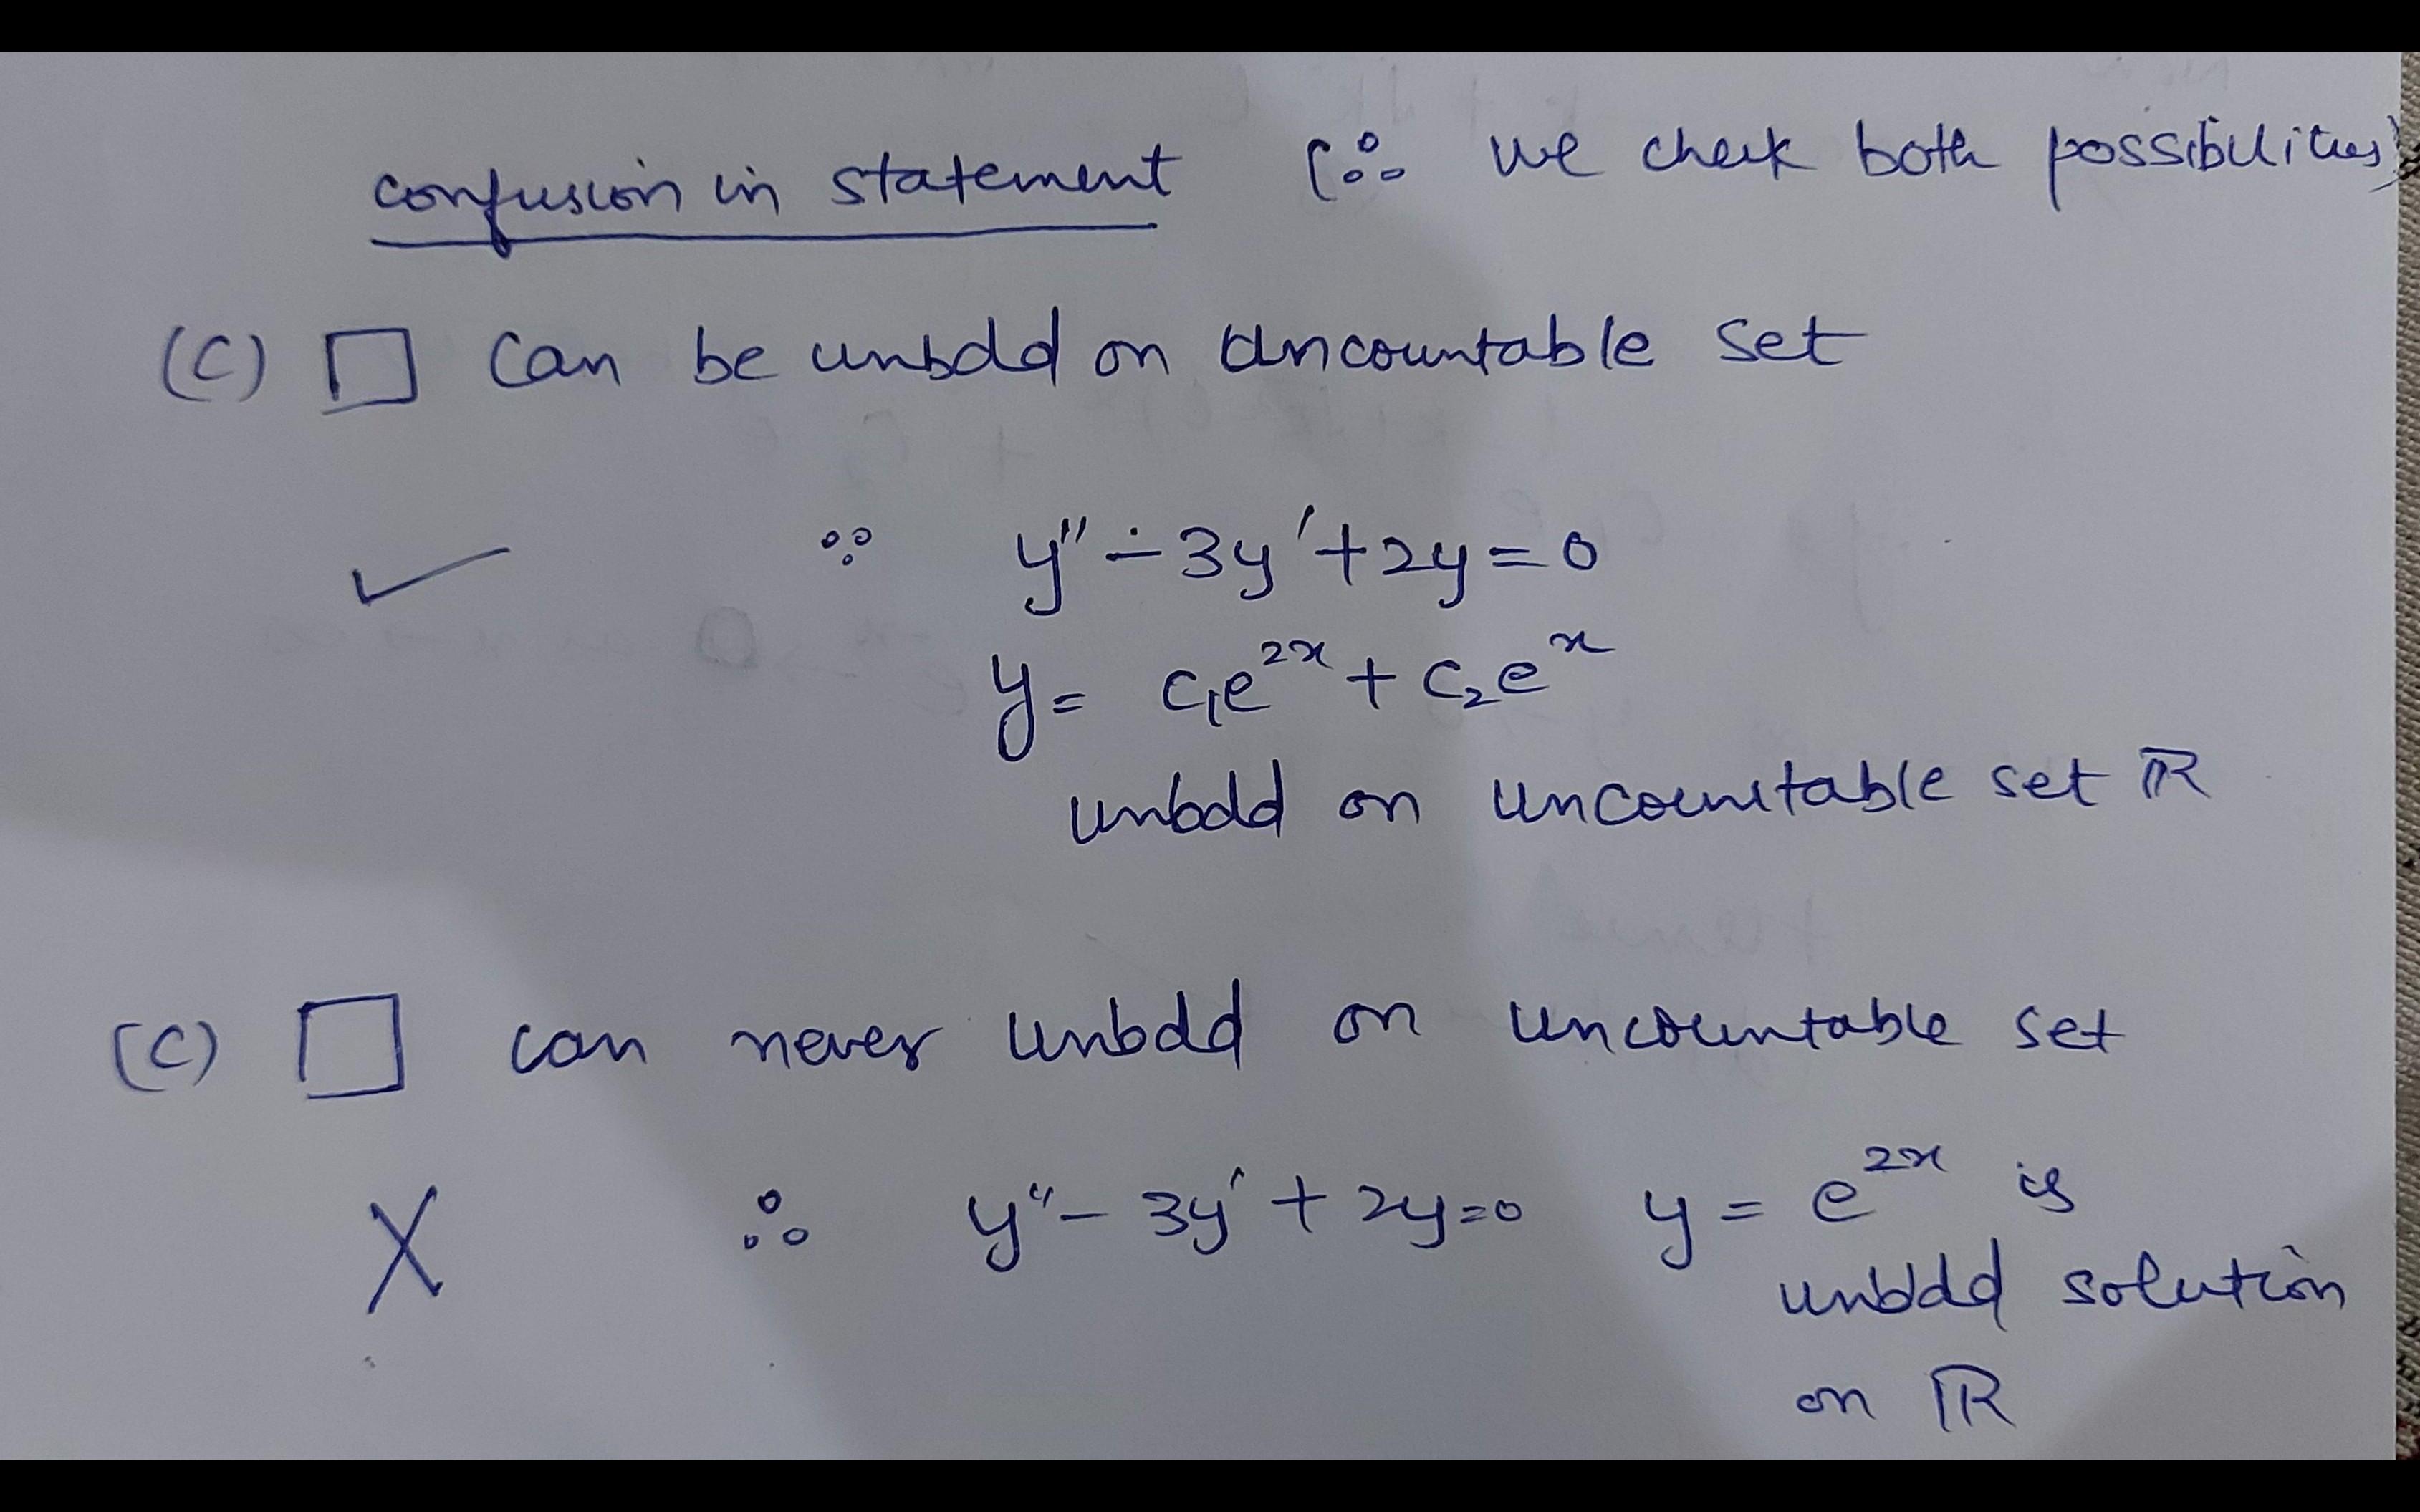 confusion in statement (∴ we check both possibilities)
(C) □ can be unbdd on uncountable set
✓ ∵ y" - 3y' + 2y = 0
y = c₁e²ˣ + c₂eˣ
unbdd on uncountable set ℝ
(C) □ can never unbdd on uncountable set
X ∴ y" - 3y' + 2y = 0 y = e²ˣ is
unbdd solution
on ℝ